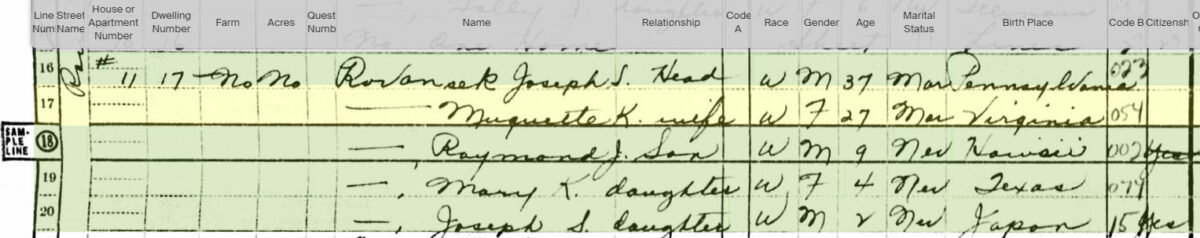 Line Num Street Name House or Apartment Number Dwelling Number Farm Acres Quest Numb Name Relationship Code A Race Gender Age Marital Status Birth Place Code B Citizensh
16 # 11 17 No No Rovansek Joseph S. Head W M 37 Mar Pennsylvania 023
17 — Muquette K. wife W F 27 Mar Virginia 054
SAM-PLE LINE 18 —, Raymond J. Son W M 9 Nev Hawaii 002 yes
19 —, Mary K. daughter W F 4 Nev Texas 074
20 —, Joseph S. daughter W M 2 Nev Japan 15 yes